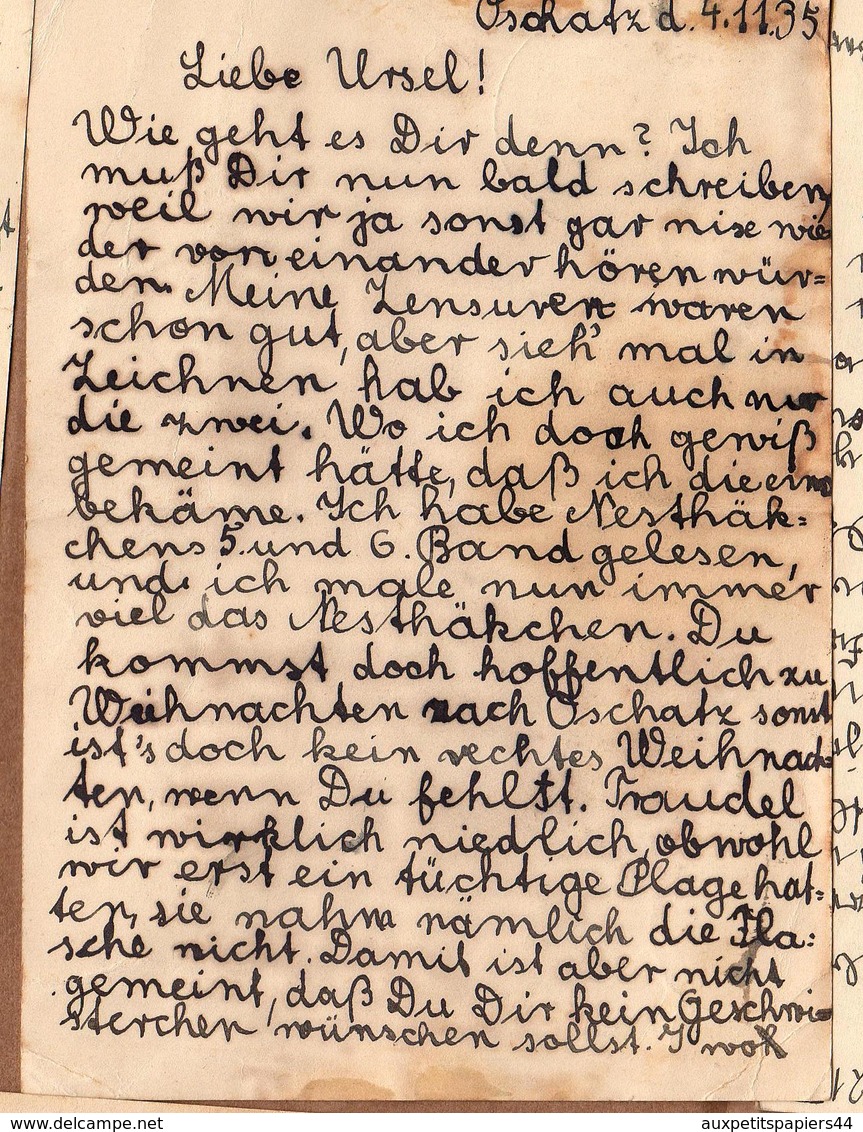 Oschatz d. 4.11.35
Liebe Ursel!
Wie geht es Dir denn? Ich
muß Dir nun bald schreiben,
weil wir ja sonst gar nix wie
der von einander hören wür=
den. Meine Zensuren waren
schon gut, aber sieh' mal in
Zeichnen hab ich auch nur
die zwei. Wo ich doch gewiß
gemeint hätte, daß ich die eins
bekäme. Ich habe Nesthäk=
chens 5. und 6. Band gelesen,
und ich male nun immer
viel das Nesthäkchen. Du
kommst doch hoffentlich zu
Weihnachten nach Oschatz sonst
ist's doch kein rechtes Weihnach=
ten, wenn Du fehlst. Traudel
ist wirklich niedlich, obwohl
wir erst ein tüchtige Plage hat=
ten, sie nahm nämlich die Fla=
sche nicht. Damit ist aber nicht
gemeint, daß Du Dir kein Geschwi=
sterchen wünschen sollst.
www.delcampe.net
auxpetitspapiers44